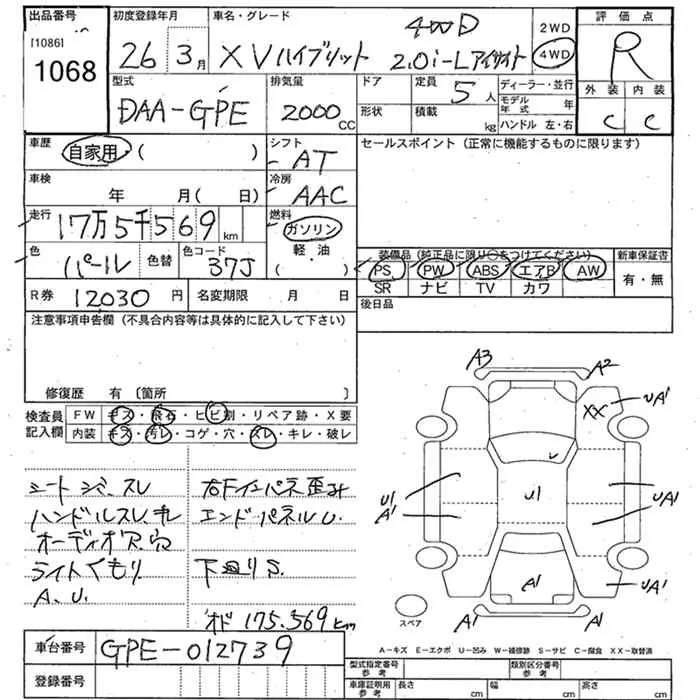 出品番号 初度登録年月 車名・グレード 評価点
[1086] 1068
26年 3月 XVハイブリット 4WD 2.0i-Lアイサイト 2WD 4WD R
型式 排気量 ドア 定員 ディーラー・並行 外装 内装
DAA-GPE 2000CC 5人 モデル年式 年 C C
形状 積載 kg ハンドル 左・右
車歴 自家用 ( ) シフト AT セールスポイント (正常に機能するものに限ります)
車検 年 月( 日) 冷房 AAC
走行 17万5千569km 燃料 ガソリン 軽・油 ( )
色 パール 色替 色コード 37J
装備品 (純正品に限り○をつけてください) 新車保証書
PS PW ABS エアB AW 有・無
SR ナビ TV カワ
R券 12030円 名変期限 月 日 後日品
注意事項申告欄 (不具合内容等は具体的に記入して下さい)
修復歴 有 〔箇所 〕
検査員記入欄 FW キズ・飛石・ヒビ割・リペア跡・X要
内装 キズ・汚レ・コゲ・穴・スレ・キレ・破レ
シートシミ、スレ
ハンドルスレ、キレ
オーディオア、穴
ライトくもり
A、U.
右Fインパネ歪み
エンドパネルU.
下廻りS.
オド 175.569km
A3 A2
XX UA1
U1 A1 U1 UA1
A1 UA1
A1 A1
スペア
A-キズ E-エクボ U-凹み W-補修跡 S-サビ C-腐食 XX-取替済
車台番号 GPE-012739
登録番号
型式指定番号 参考 類別区分番号 参考
車庫証明用 参考 長さ cm 幅 cm 高さ cm